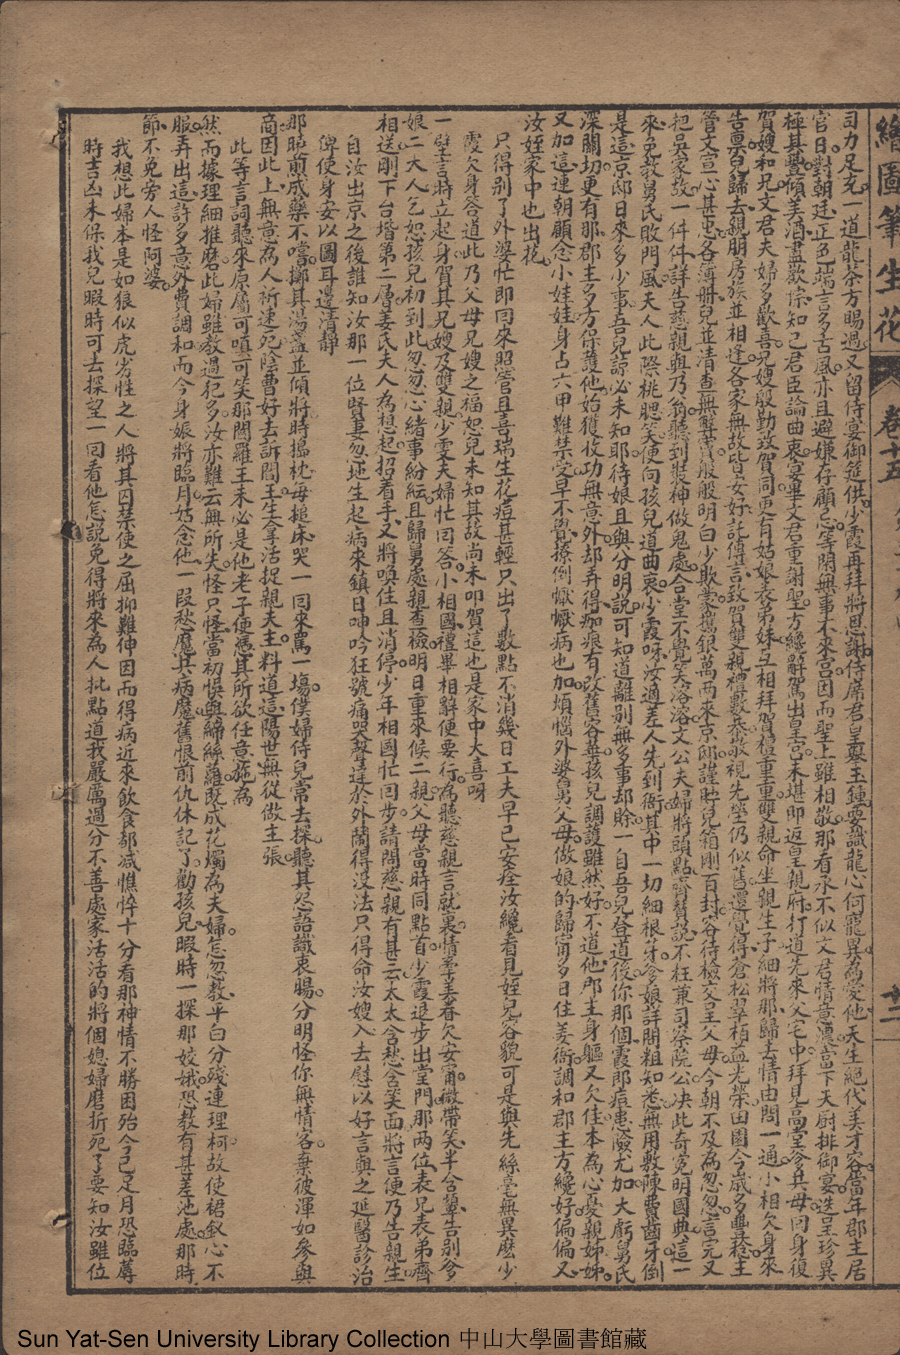 繪圖筆生花 卷十五
廿二
司力足充一道龍茶方賜過又留侍宴御筵供少霞再拜將恩謝侍席君皇舉玉鍾要識龍心何寵異為愛他天生絕代美才容當年郡主居
官日對朝廷正色端言多古風亦且避嫌存顧忌等閒無事不來宮因而聖上雖相敬那看永不似文君情意濃當下天廚排御宴送呈珍異
極其豐傾美酒盡歡悰知己君臣論曲衷宴畢文君重謝聖方纔辭駕出皇宮未堪即返皇親府打道先來父宅中拜見高堂參其母回身復
賀嫂和兄文君夫婦多歡喜兄嫂殷勤致賀同更有姑娘表弟妹互相拜賀禮重重雙親命坐親生子細將那歸去情由問一通小相欠身來
告稟兒歸去親朋房族並相逢各家無故皆安好託傳言致賀雙親禮數恭敬視先塋仍似舊還覺得蒼松翠栢益光榮田園今歲多豐稔主
管文宣心甚忠各簿册兒並清查無弊竇般般明白少欺蒙攜銀萬兩來京邸謹貯兒箱剛百封容待檢交呈父母今朝不及為忽忽言完又
把吳家故一件件詳告慈親與乃翁聽到裝神做鬼處合堂不覺笑溶溶文公夫婦將頭點齊贊說不枉兼司察院公决此奇寃明國典這一
來免教舅氏敗門風夫人此際桃腮笑便向孩兒道曲衷少霞呀汝適差人先到衙其中一切細根芽參娘詳問粗知悉無用敷陳費齒牙倒
是這京邸日來多少事吾兒諒必未知耶待娘且與分明說可知道離別無多事却賒一自吾兒登道後你那個霞郎痘患險尤加大虧舅氏
深關切更有那郡主多方保護他始獲收功無意外却弄得痂痕有改舊容華孩兒調護雖然好不道他郡主身軀又欠佳本為心憂親姊姊
又加這連朝顧念小娃娃身占六甲難禁受早不覺撩倒懨懨病也加煩惱外婆舅父母做娘的歸甯多日住姜衙調和郡主方纔好偏偏又
汝姪家中也出花
只得別了外婆忙即回來照管且喜瑞生花痘甚輕只出了數點不消幾日工夫早已安痊汝纔看見姪兒容貌可是與先絲毫無異麽少
霞欠身答道此乃父母兄嫂之福如兒未知其故尚未叩賀這也是家中大喜呀
一壁言時立起身賀其兄嫂及雙親少雯夫婦忙回答小相國禮畢相辭便要行為聽慈親言就裏情牽美眷欠安甯微帶笑半含顰告別爹
娘二大人乞恕孩兒初到此忽忽心緒事紛紜且歸舅處親查檢明日重來候二親父母當時同點首少霞退步出堂門那兩位表兄表弟齊
相送剛下台堦第二層姜氏夫人為想起招着手又將喚住且消停少年相國忙回步請問慈親有甚云太太含愁含笑面將言便乃告親生
自汝出京之後誰知汝那一位賢妻忽地生起病來鎮日呻吟狂號痛哭聲達於外鬧得沒法只得命汝嫂入去慰以好言與之延醫診治
俾使身安以圖耳邊清靜
那曉煎成藥不嚐擲其湯盞並傾將時搗枕每搥床哭一回來罵一塲僕婦侍兒常去探聽其怨語識衷腸分明怪你無情客棄彼渾如參與
商因此上無意為人祈速死陰曹好去訴閻王生拿活捉親夫主料道這陽世無從做主張
此等言詞聽來原屬可嗔可笑那閻羅王未必是他老子便憑其所欲任意施為
然而據理細推磨此婦雖教過犯多汝亦難云無所失怪只怪當初悞與締絲蘿既成花燭為夫婦怎忽教平白分殘連理柯故使裙釵心不
服弄出這許多意外費調和而今身娠將臨月姑念他一段愁魔其病魔舊恨前仇休記了勸孩兒暇時一探那姣娥恐教有甚差池處那時
節不免旁人怪阿婆
我想此婦本是如狼似虎劣性之人將其囚禁使之屈抑難伸因而得病近來飲食都减憔悴十分看那神情不勝困殆今已足月恐臨蓐
時吉凶未保我兒暇時可去探望一回看他怎說免得將來為人批點道我嚴厲過分不善處家活活的將個媳婦磨折死了要知汝雖位
Sun Yat-Sen University Library Collection 中山大學圖書館藏